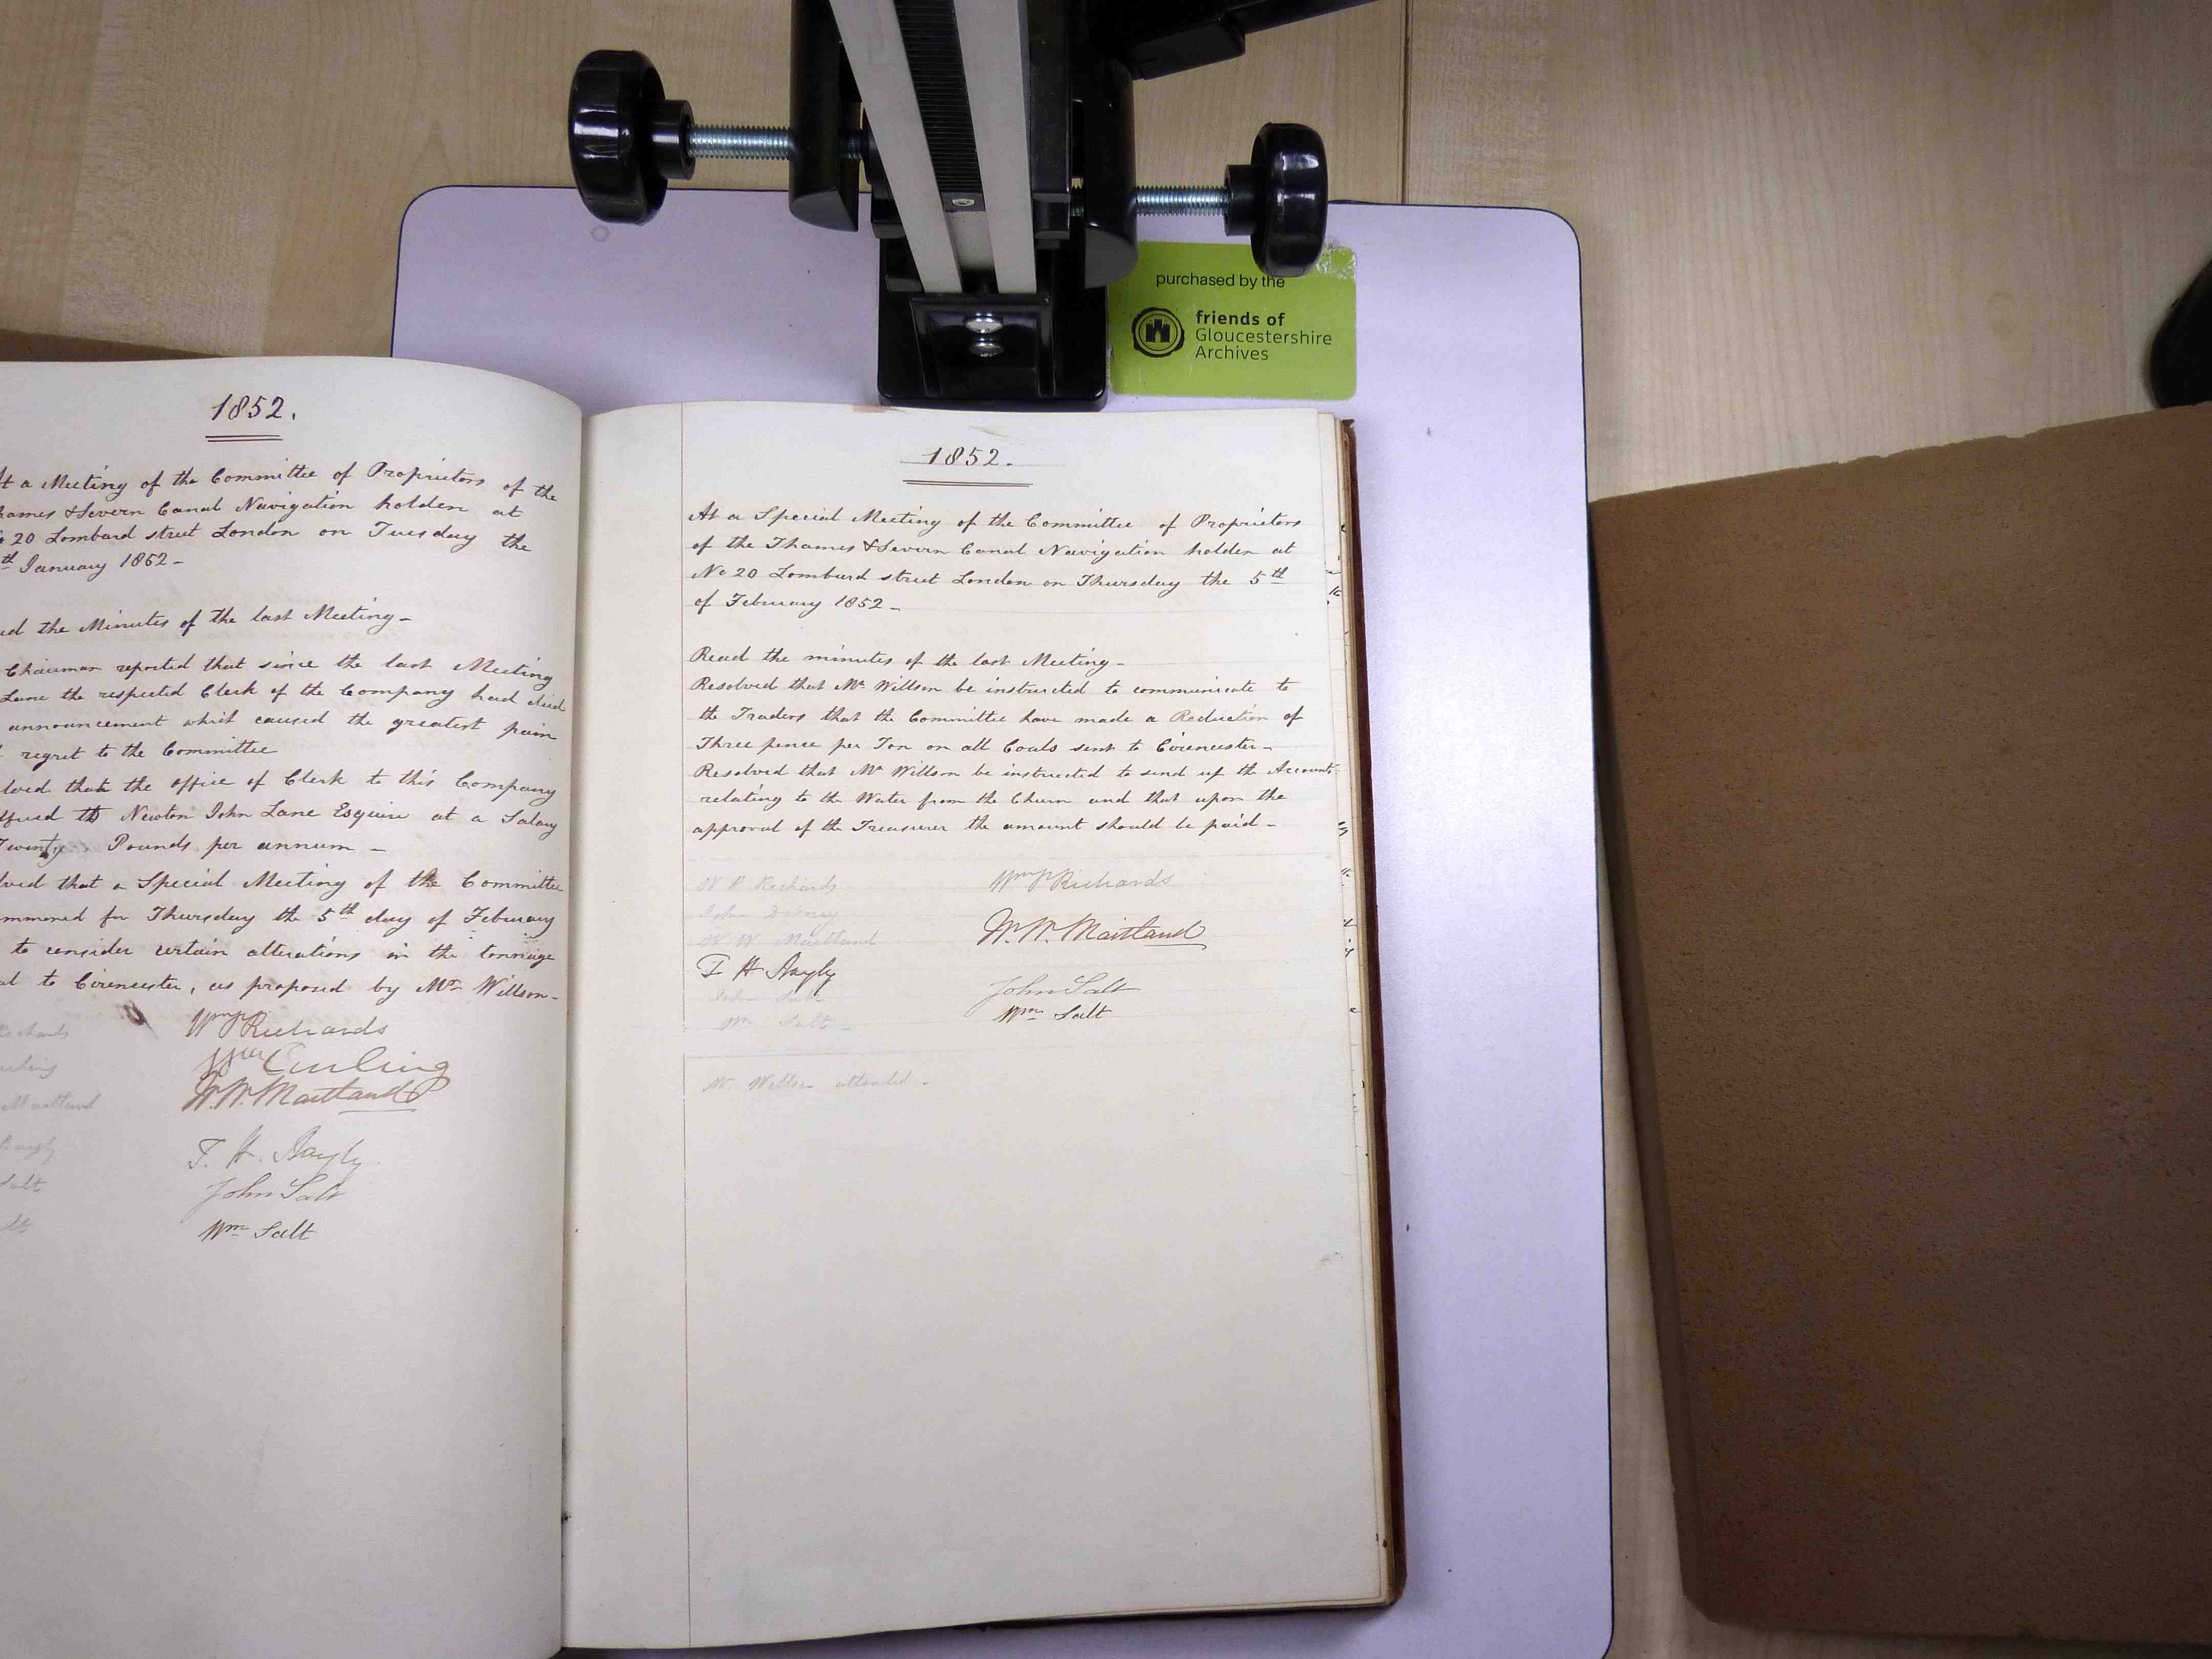 purchased by the
friends of
Gloucestershire
Archives
1852.
At a Meeting of the Committee of Proprietors of the
hames & Severn Canal Navigation holden at
20 Lombard street London on Tuesday the
th January 1852 -
the Minutes of the last Meeting -
Chairman reported that since the last Meeting
Lane the respected Clerk of the Company had died
announcement which caused the greatest pain
regret to the Committee
lved that the office of Clerk to this Company
ffered to Newton John Lane Esquire at a Salary
Twenty Pounds per annum -
lved that a Special Meeting of the Committee
mmoned for Thursday the 5th day of February
to consider certain alterations in the tonnage
al to Cirencester, as proposed by Mr Willson -
Richards Wm P Richards
urling Wm Curling
Maitland W. W. Maitland
Bayly F. H. Bayly
Salt John Salt
lt Wm Salt
1852.
At a Special Meeting of the Committee of Proprietors
of the Thames & Severn Canal Navigation holden at
No 20 Lombard street London on Thursday the 5th
of February 1852 -
Read the minutes of the last Meeting -
Resolved that Mr Willson be instructed to communicate to
the Traders that the Committee have made a Reduction of
Three pence per Ton on all Coals sent to Cirencester -
Resolved that Mr Willson be instructed to send up the Accounts
relating to the Water from the Churn and that upon the
approval of the Treasurer the amount should be paid -
W P Richards Wm P Richards
John
W W Maitland W. W. Maitland
F H Bayly
John Salt John Salt
Wm Salt - Wm Salt
Mr Willson attended -